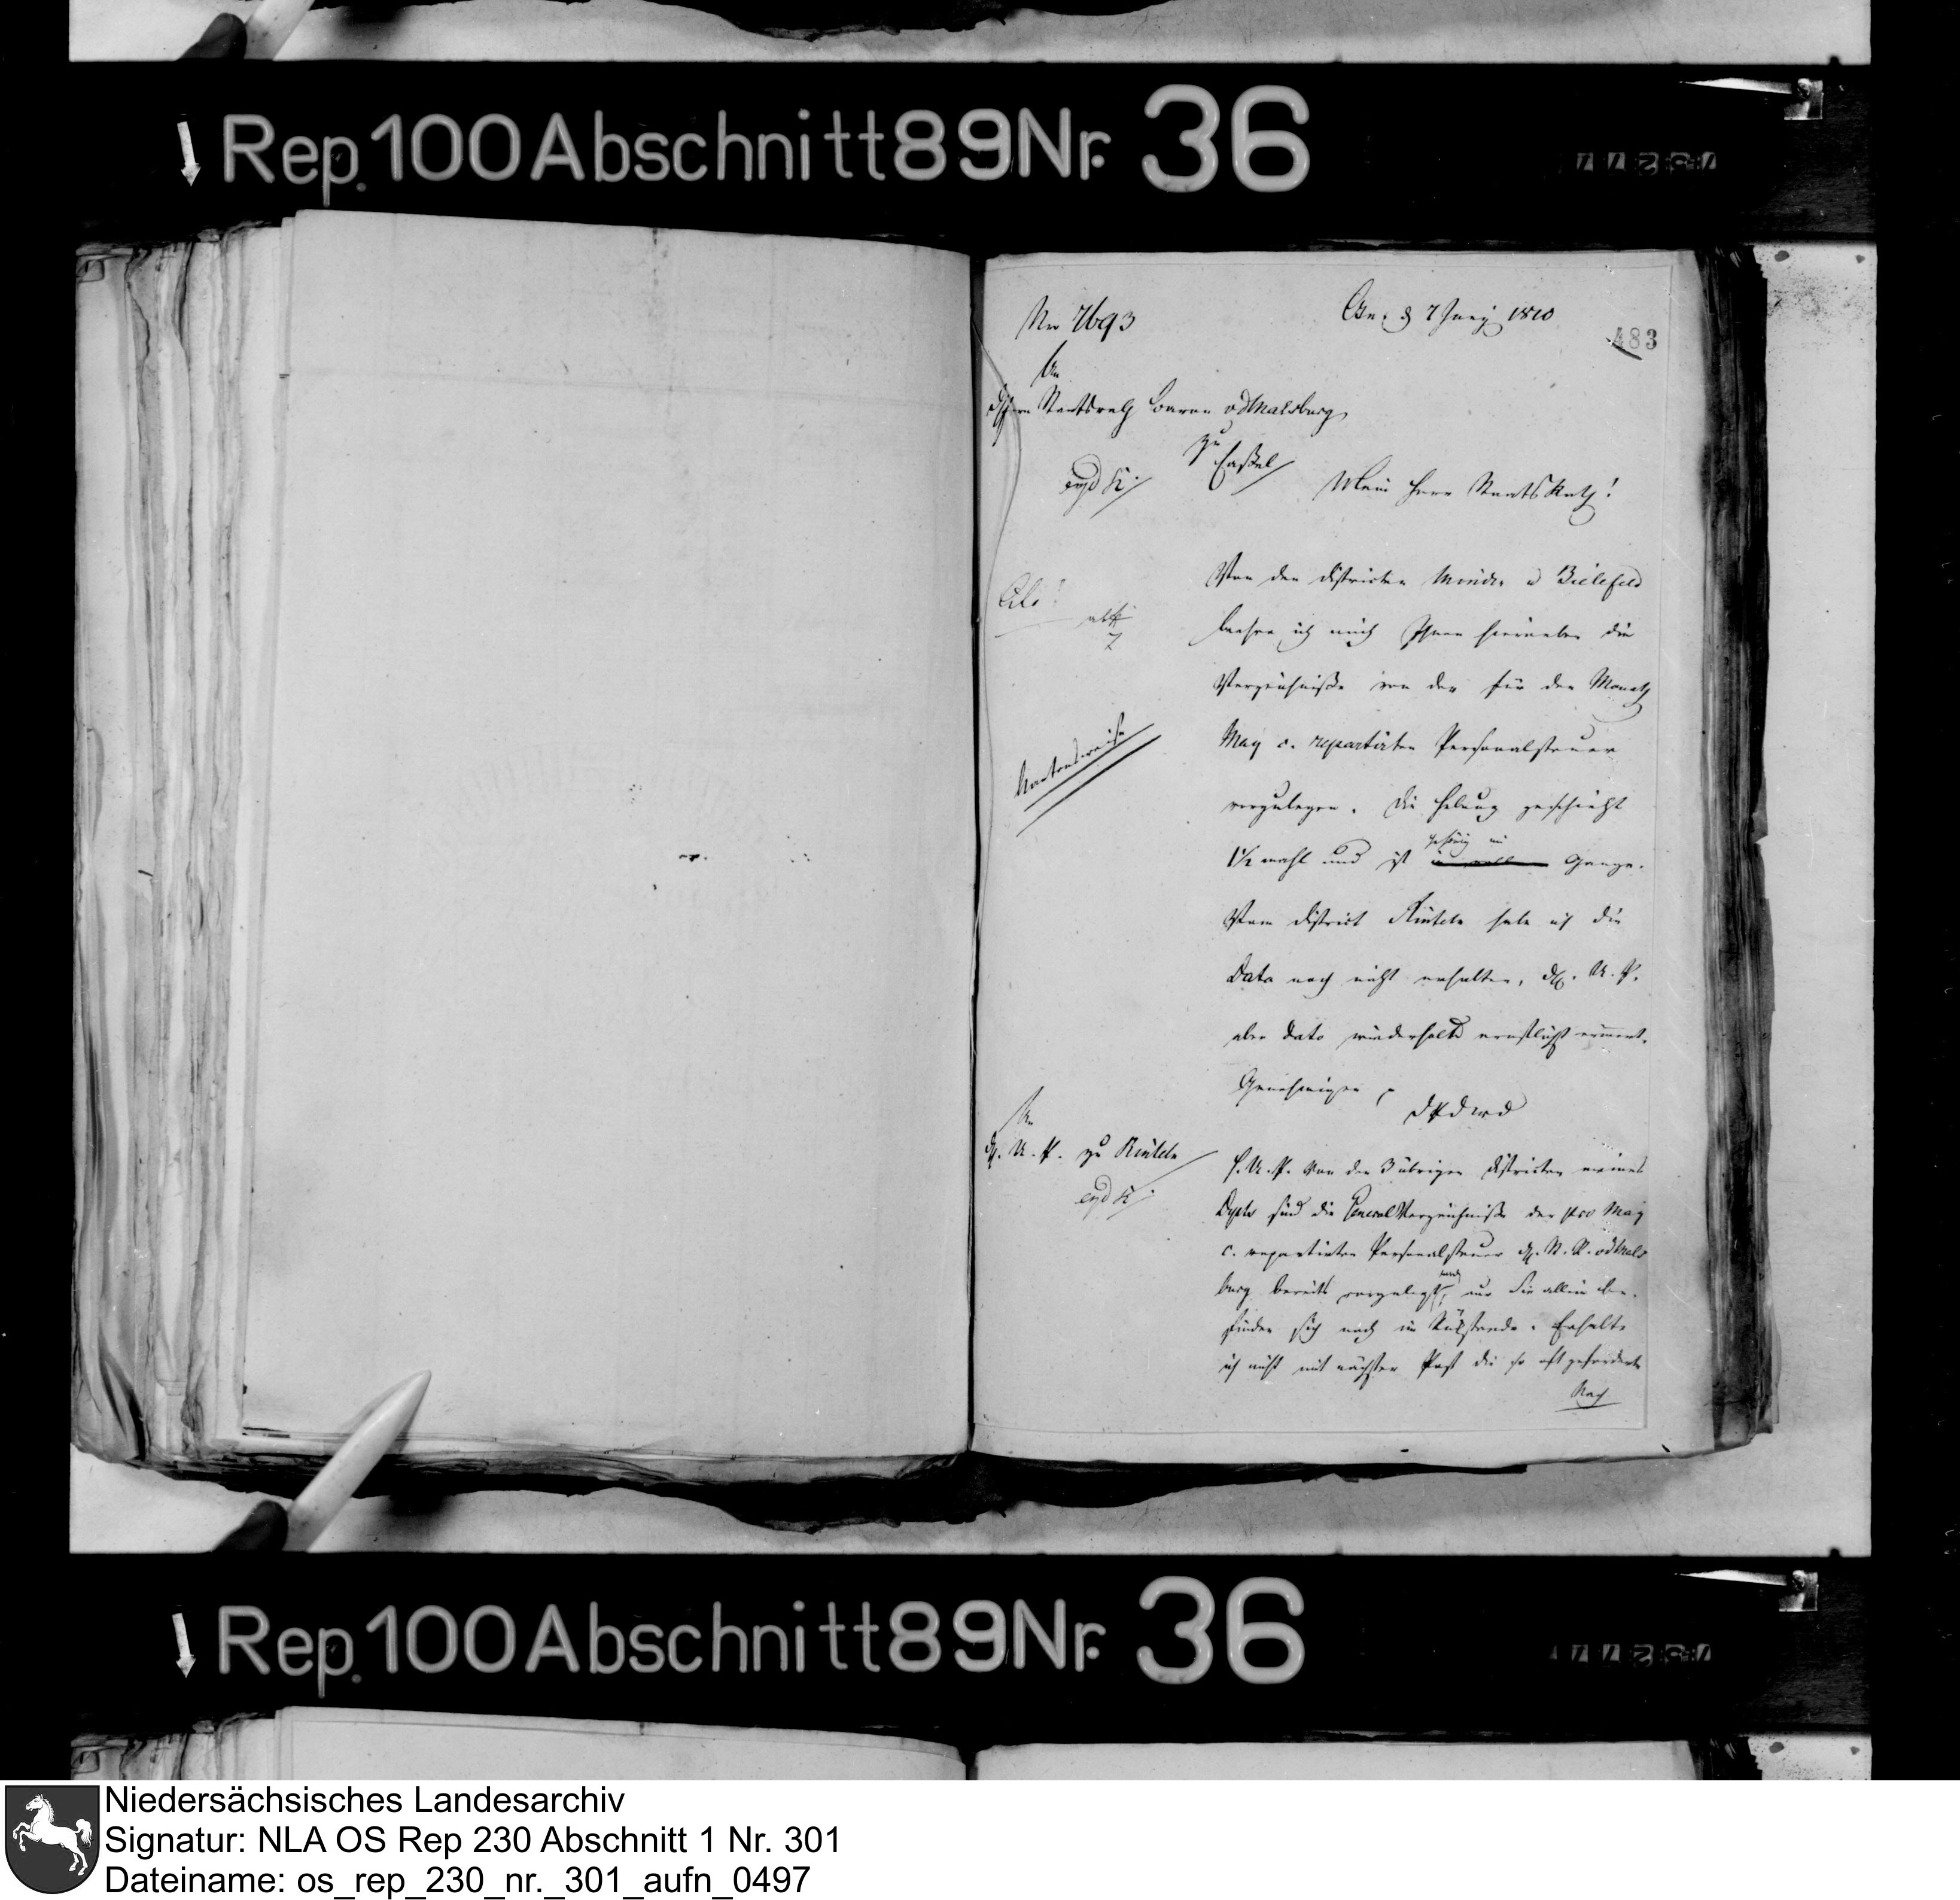 Rep. 100 Abschnitt 89 Nr. 36
Nro 7693
d 7 Juny 1810
483
An
Herrn Staatsrath Baron vdMalsburg
zu Cassel
exp
Mein Herr StaatsRath!
Cito!
Von den Districten Minden u Bielefeld
beehre ich mich Ihnen hierneben die
Verzeichniße von der für den Monath
May c. repartirten Personalsteuer
vorzulegen. Die Hebung geschieht
1½ mahl und ist gehörig im Gange.
Vom District Rinteln habe ich die
Data noch nicht erhalten, U. P.
aber dato wiederholt ernstlichst erinnert.
Genehmigen p
Cantonsweise
An
H. U. P. zu Rinteln
exp
H. U. P. Von den 3 übrigen Districten meines
Depts sind die General Verzeichniße der pro May
c. repartirten Personalsteuer H. St. R. vdMals
burg bereits vorgelegt, nur Sie allein be-
finden sich noch im Rückstande. Erhalte
ich nicht mit nächster Post die so oft geforderte
Nach
Rep. 100 Abschnitt 89 Nr. 36
Niedersächsisches Landesarchiv
Signatur: NLA OS Rep 230 Abschnitt 1 Nr. 301
Dateiname: os_rep_230_nr._301_aufn_0497